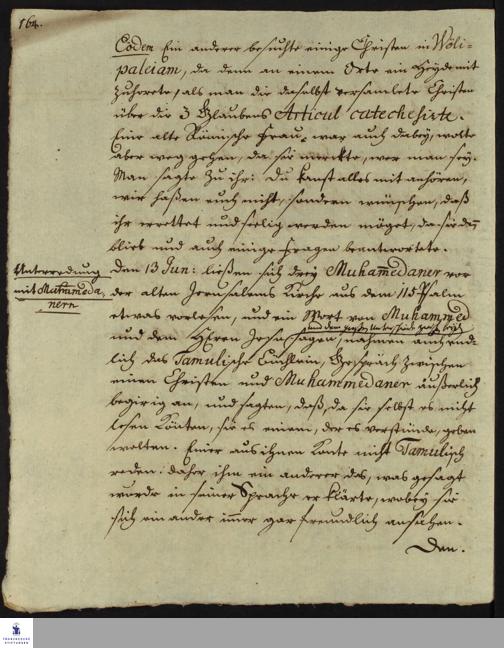 164.
Eodem Ein anderer besuchte einige Christen in Wöli-
paleiam, da denn an einem Orte ein Heyde mit
zuhorete, als man die daselbst versamlete Christen
über die 3 Glaubens Articul catechesirte.
Eine alte Römische Frau, war auch dabey, wolte
aber weg gehen, da sie merckte, wer man sey.
Man sagte zu ihr: Du kanst alles mit anhören,
wir haßen euch nicht, sondern wünschen, daß
ihr errettet und seelig werden möget, da sie den
blieb und auch einige Fragen beantwortete.
Unterredung
mit Muhammeda
nern
Den 13 Jun: ließen sich drey Muhamedaner vor
der alten Jerusalems Kirche aus dem 115 Psalm
etwas vorlesen, und ein Wort von Muhammed
und dem
und dem HErren Jesu sagen, nahmen auch end-
lich das Tamulische Büchlein, Gespräch zwischen
einen Christen und Muhammedaner äußerlich
begierig an, und sagten, daß, da sie selbst es nicht
lesen könten, sie es einem, der es verstünde, geben
wolten. Einer aus ihnen konte nicht Tamulisch
reden: daher ihm ein anderer das, was gesagt
wurde in seiner Sprache erklärte, wobey sie
sich ein ander immer gar freundlich ansahen.
Den.
FRANCKESCHE
STIFTUNGEN